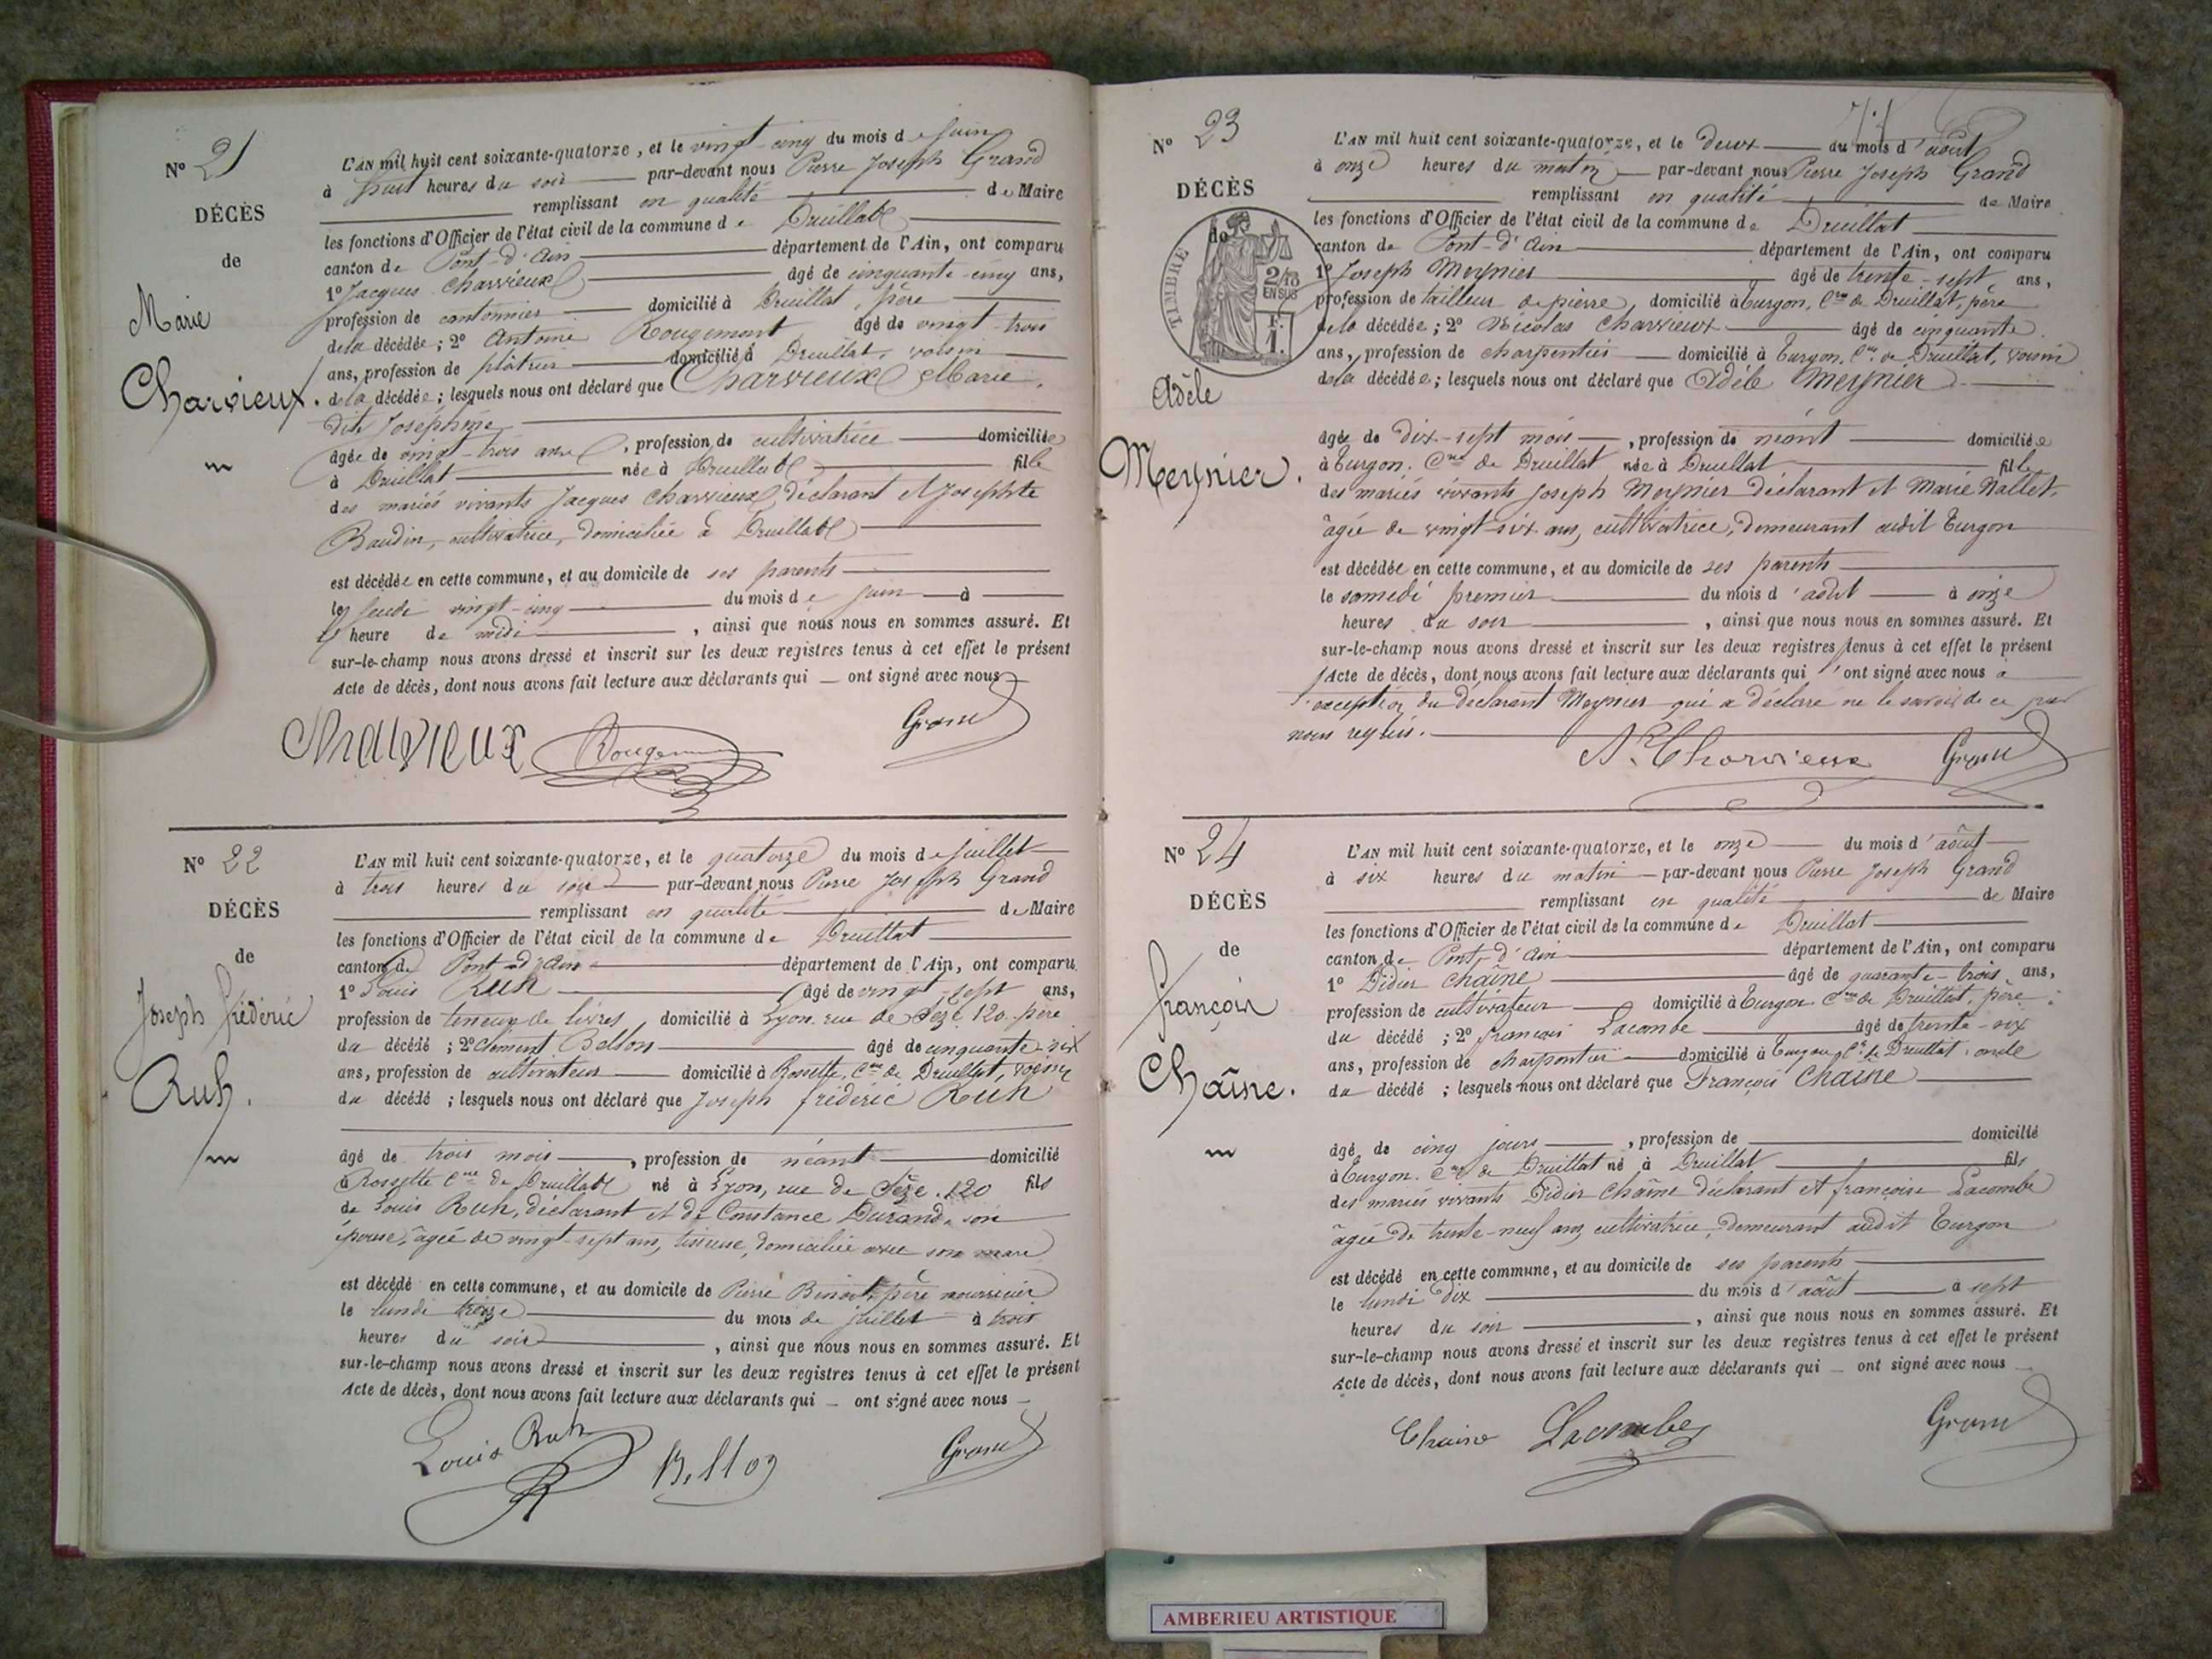 Nº 21
DÉCÈS
de
Marie
Charvieux.
L'AN mil huit cent soixante-quatorze, et le vingt-cinq du mois de juin
à huit heures du soir par-devant nous Pierre Joseph Grand
remplissant en qualité de Maire
les fonctions d'Officier de l'état civil de la commune de Druillat
canton de Pont-d'Ain département de l'Ain, ont comparu
1º Jacques Charvieux âgé de cinquante-cinq ans,
profession de cantonnier domicilié à Druillat, père
de la décédée; 2º Antoine Rougemont âgé de vingt-trois
ans, profession de plâtrier domicilié à Druillat, voisin
de la décédée; lesquels nous ont déclaré que Charvieux Marie,
dite Joséphine
âgée de vingt-trois ans, profession de cultivatrice domiciliée
à Druillat née à Druillat fille
des mariés vivants Jacques Charvieux, déclarant et Josephte
Baudin, cultivatrice, domiciliée à Druillat
est décédée en cette commune, et au domicile de ses parents
le jeudi vingt-cinq du mois de juin à
heure de midi, ainsi que nous nous en sommes assuré. Et
sur-le-champ nous avons dressé et inscrit sur les deux registres tenus à cet effet le présent
Acte de décès, dont nous avons fait lecture aux déclarants qui — ont signé avec nous
Charvieux Rougemont Grand
Nº 22
DÉCÈS
de
Joseph frédéric
Ruh.
L'AN mil huit cent soixante-quatorze, et le quatorze du mois de juillet
à trois heures du soir par-devant nous Pierre Joseph Grand
remplissant en qualité de Maire
les fonctions d'Officier de l'état civil de la commune de Druillat
canton de Pont-d'Ain département de l'Ain, ont comparu
1º Louis Ruh âgé de vingt-sept ans,
profession de teneur de livres, domicilié à Lyon rue de Sèze 120, père
du décédé; 2º Clément Belloy âgé de cinquante-six
ans, profession de cultivateur domicilié à Rossette, Cne de Druillat, voisin
du décédé; lesquels nous ont déclaré que Joseph frédéric Ruh
âgé de trois mois, profession de néant domicilié
à Rossette Cne de Druillat né à Lyon, rue de Sèze. 120 fils
de Louis Ruh, déclarant et de Constance Durand, son
épouse, âgée de vingt-sept ans, tisseuse, domiciliée avec son mari
est décédé en cette commune, et au domicile de Pierre Benoit, père nourricier
le lundi treize du mois de juillet à trois
heures du soir, ainsi que nous nous en sommes assuré. Et
sur-le-champ nous avons dressé et inscrit sur les deux registres tenus à cet effet le présent
Acte de décès, dont nous avons fait lecture aux déclarants qui — ont signé avec nous —
Louis Ruh Belloy Grand
Nº 23
DÉCÈS
de
TIMBRE
2/10
EN SUS
F.
1.
Adèle
Meynier.
L'AN mil huit cent soixante-quatorze, et le deux du mois d'août
à onze heures du matin par-devant nous Pierre Joseph Grand
remplissant en qualité de Maire
les fonctions d'Officier de l'état civil de la commune de Druillat
canton de Pont-d'Ain département de l'Ain, ont comparu
1º Joseph Meynier âgé de trente-sept ans,
profession de tailleur de pierre, domicilié à Turgon, Cne de Druillat, père
de la décédée; 2º Nicolas Charvieux âgé de cinquante
ans, profession de charpentier domicilié à Turgon, Cne de Druillat, voisin
de la décédée; lesquels nous ont déclaré que Adèle Meynier
âgée de dix-sept mois, profession de néant domiciliée
à Turgon. Cne de Druillat née à Druillat fille
des mariés vivants Joseph Meynier déclarant et Marie Nallet,
âgée de vingt-six ans, cultivatrice, demeurant audit Turgon
est décédée en cette commune, et au domicile de ses parents
le samedi premier du mois d'août à onze
heures du soir, ainsi que nous nous en sommes assuré. Et
sur-le-champ nous avons dressé et inscrit sur les deux registres tenus à cet effet le présent
Acte de décès, dont nous avons fait lecture aux déclarants qui ont signé avec nous à
l'exception du déclarant Meynier qui a déclaré ne le savoir de ce par
nous requis.
N. Charvieux Grand
Nº 24
DÉCÈS
de
françois
Chaîne.
L'AN mil huit cent soixante-quatorze, et le onze du mois d'août
à six heures du matin par-devant nous Pierre Joseph Grand
remplissant en qualité de Maire
les fonctions d'Officier de l'état civil de la commune de Druillat
canton de Pont-d'Ain département de l'Ain, ont comparu
1º Didier Chaîne âgé de quarante-trois ans,
profession de cultivateur domicilié à Turgon Cne de Druillat, père
du décédé; 2º françois Lacombe âgé de trente-six
ans, profession de charpentier domicilié à Turgon, Cne de Druillat, oncle
du décédé; lesquels nous ont déclaré que François Chaîne
âgé de cinq jours, profession de domicilié
à Turgon. Cne de Druillat né à Druillat fils
des mariés vivants Didier Chaîne déclarant et françoise Lacombe
âgée de trente-neuf ans cultivatrice, demeurant audit Turgon
est décédé en cette commune, et au domicile de ses parents
le lundi dix du mois d'août à sept
heures du soir, ainsi que nous nous en sommes assuré. Et
sur-le-champ nous avons dressé et inscrit sur les deux registres tenus à cet effet le présent
Acte de décès, dont nous avons fait lecture aux déclarants qui — ont signé avec nous —
Chaine Lacombe Grand
AMBERIEU ARTISTIQUE